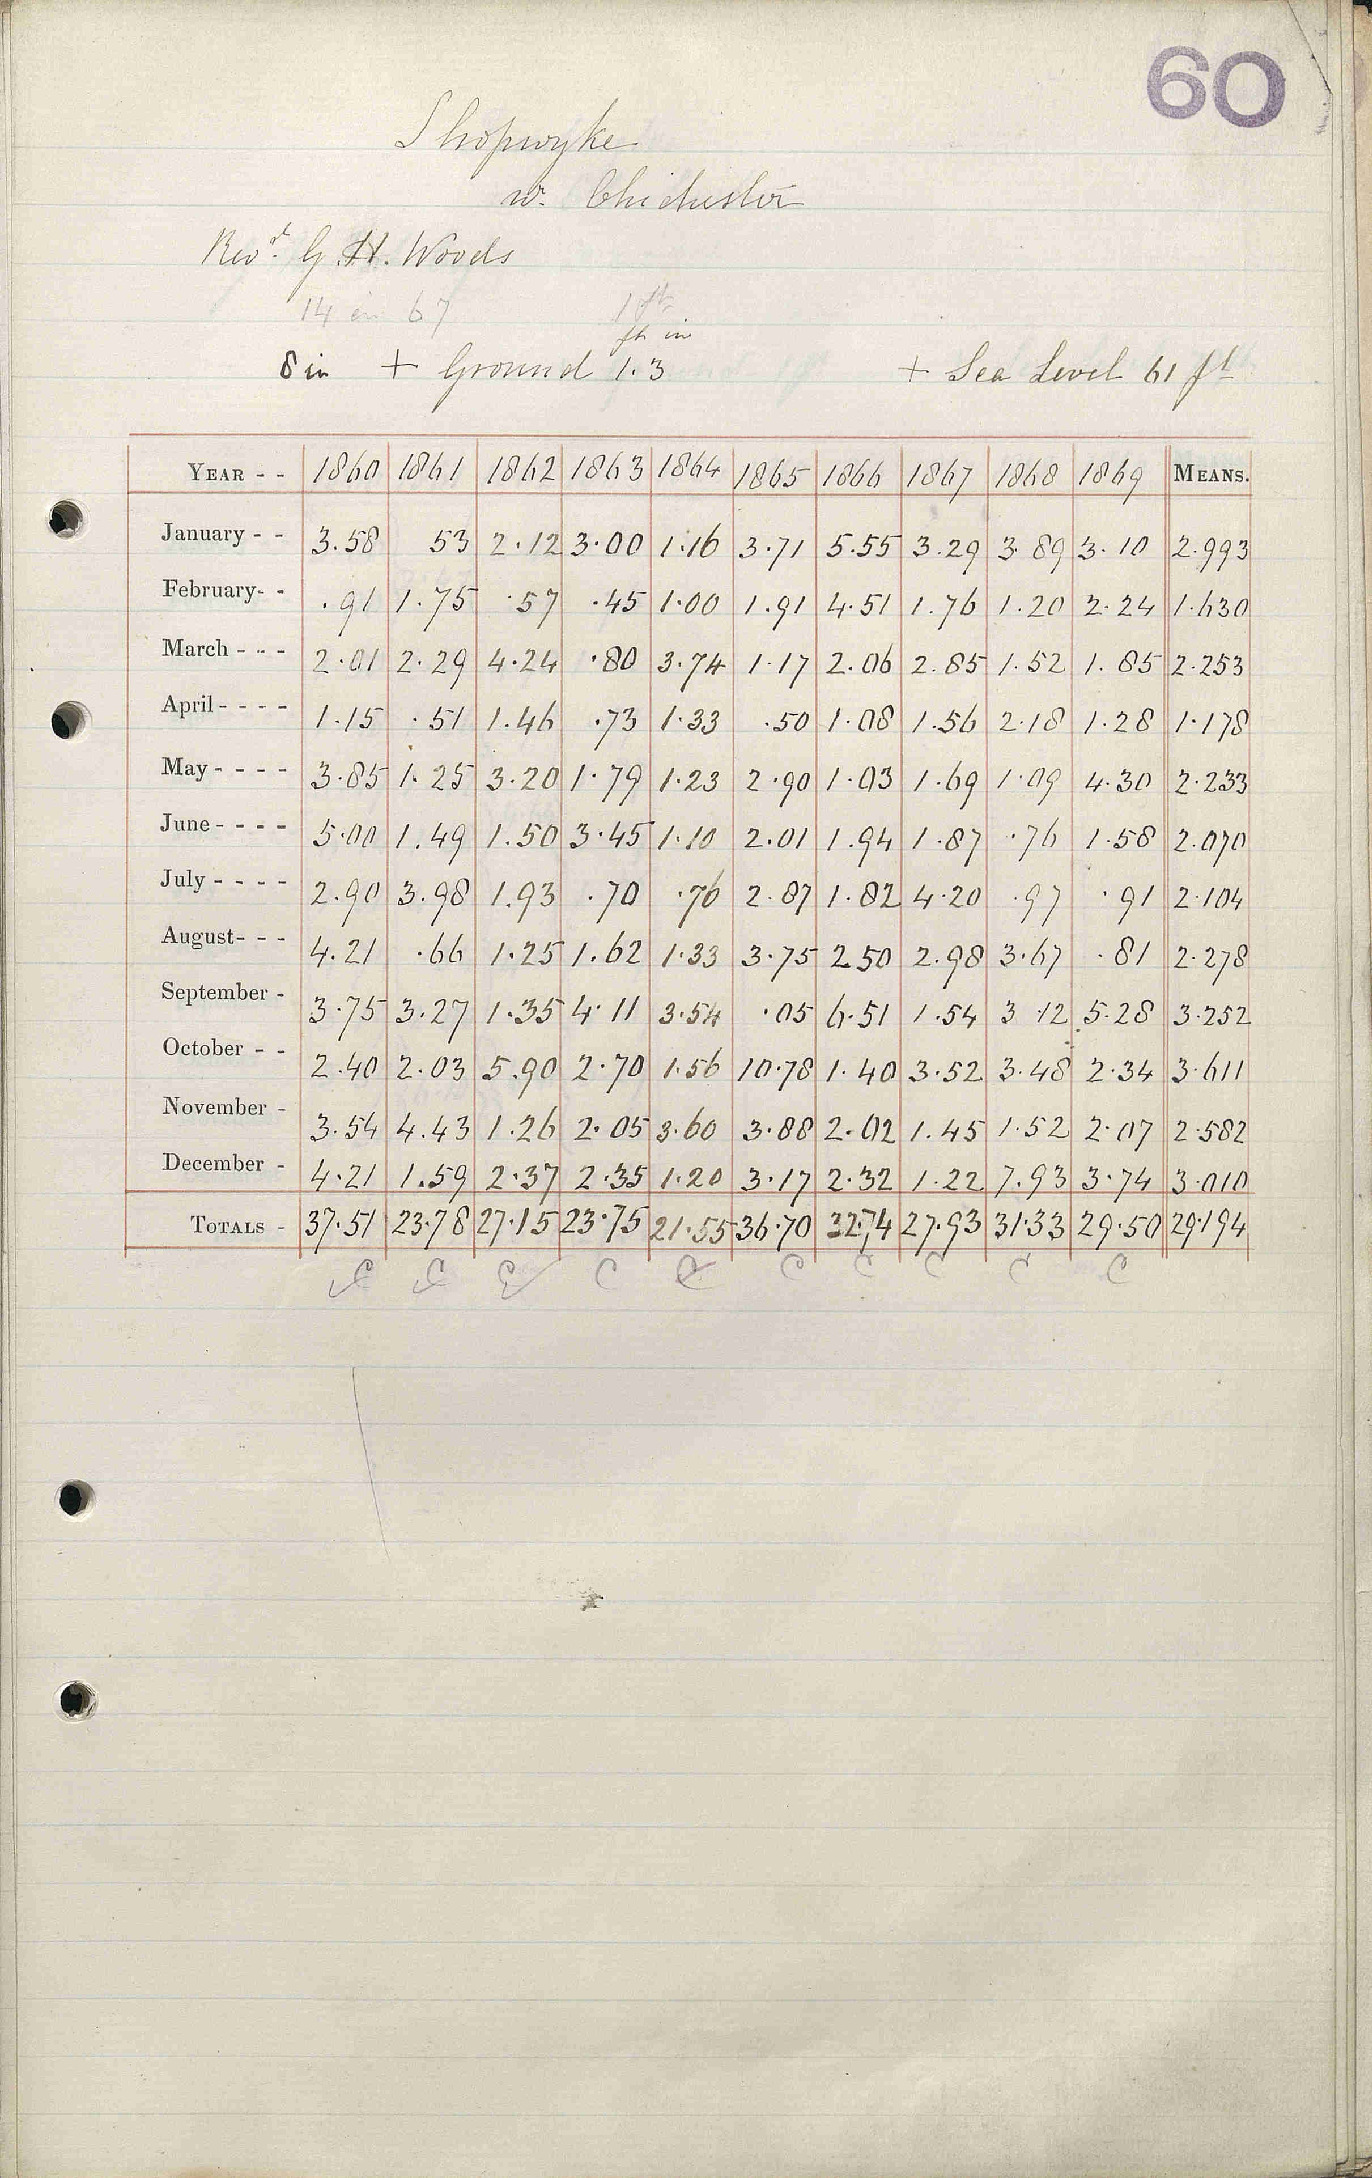 60
Shopwyke
nr. Chichester
Revd. G. H. Woods
14 in 67 1 ft
ft in
8 in + Ground 1.3 + Sea Level 61 ft
YEAR - - 1860 1861 1862 1863 1864 1865 1866 1867 1868 1869 MEANS.
January - - 3.58 53 2.12 3.00 1.16 3.71 5.55 3.29 3.89 3.10 2.993
February- - .91 1.75 .57 .45 1.00 1.91 4.51 1.76 1.20 2.24 1.630
March - - - 2.01 2.29 4.24 .80 3.74 1.17 2.06 2.85 1.52 1.85 2.253
April - - - - 1.15 .51 1.46 .73 1.33 .50 1.08 1.56 2.18 1.28 1.178
May - - - - 3.85 1.25 3.20 1.79 1.23 2.90 1.03 1.69 1.09 4.30 2.233
June - - - - 5.00 1.49 1.50 3.45 1.10 2.01 1.94 1.87 .76 1.58 2.070
July - - - - 2.90 3.98 1.93 .70 .76 2.87 1.82 4.20 .97 .91 2.104
August- - - 4.21 .66 1.25 1.62 1.33 3.75 2.50 2.98 3.67 .81 2.278
September - 3.75 3.27 1.35 4.11 3.54 .05 6.51 1.54 3.12 5.28 3.252
October - - 2.40 2.03 5.90 2.70 1.56 10.78 1.40 3.52 3.48 2.34 3.611
November - 3.54 4.43 1.26 2.05 3.60 3.88 2.02 1.45 1.52 2.07 2.582
December - 4.21 1.59 2.37 2.35 1.20 3.17 2.32 1.22 7.93 3.74 3.010
TOTALS - 37.51 23.78 27.15 23.75 21.55 36.70 32.74 27.93 31.33 29.50 29.194
C C C C C C C C C C